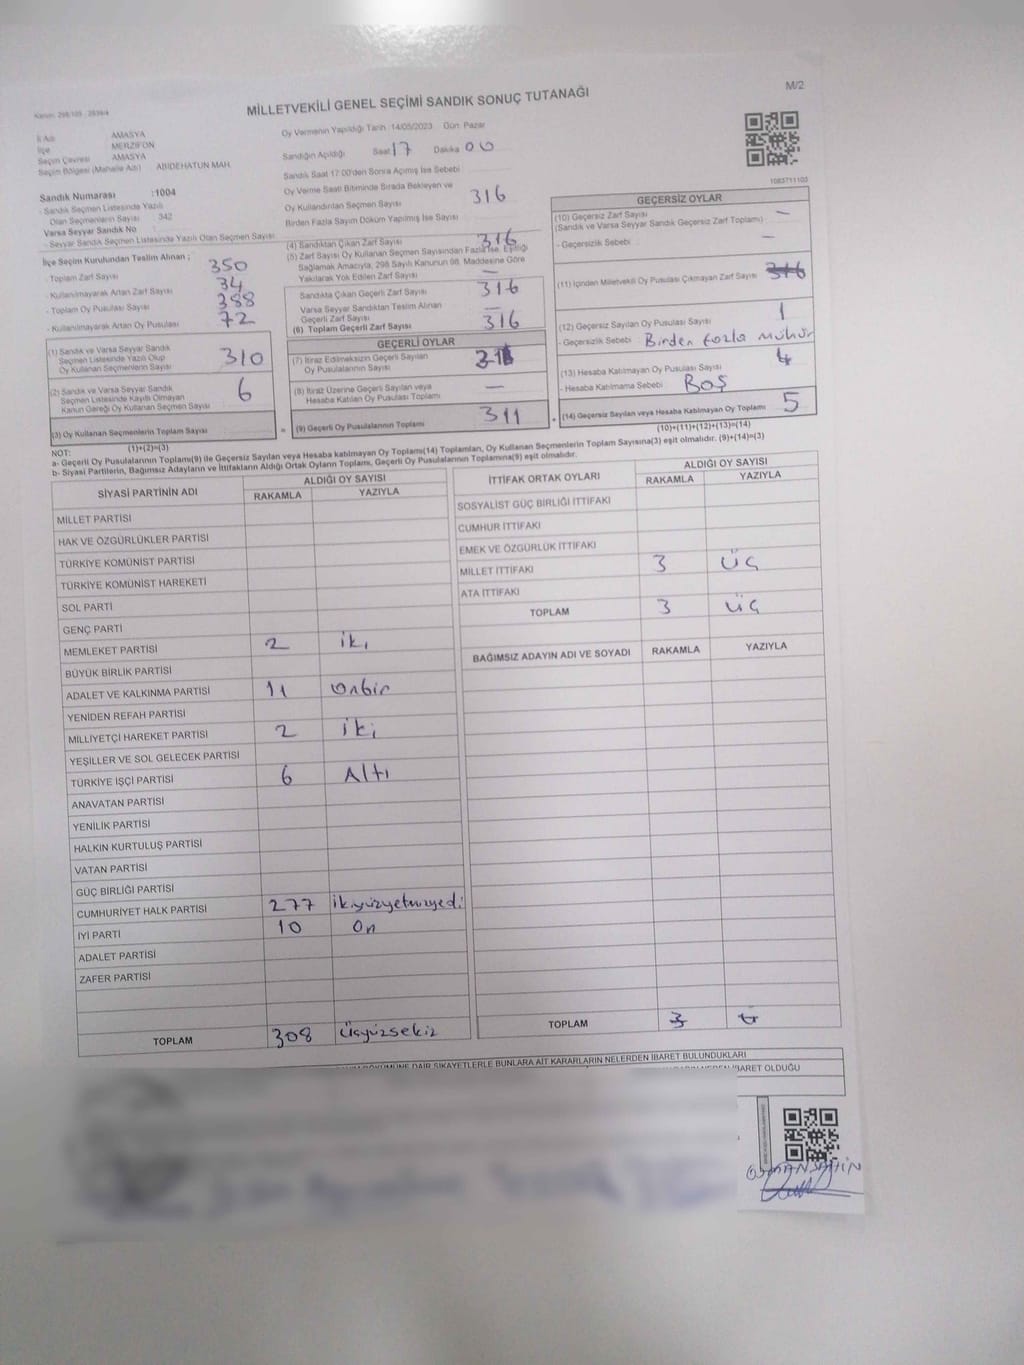 MİLLETVEKİLİ GENEL SEÇİMİ SANDIK SONUÇ TUTANAĞI
M/2
İl Adı AMASYA
İlçe MERZİFON
Seçim Çevresi AMASYA
Seçim Bölgesi (Mahalle Adı) ABİDEHATUN MAH.
Sandık Numarası :1004
- Sandık Seçmen Listesinde Yazılı
Olan Seçmenlerin Sayısı : 342
Varsa Seyyar Sandık No
- Seyyar Sandık Seçmen Listesinde Yazılı Olan Seçmen Sayısı :
İlçe Seçim Kurulundan Teslim Alınan ;
- Toplam Zarf Sayısı 350
- Kullanılmayarak Artan Zarf Sayısı 34
- Toplam Oy Pusulası Sayısı 388
- Kullanılmayarak Artan Oy Pusulası 72
(1) Sandık ve Varsa Seyyar Sandık
Seçmen Listesinde Yazılı Olup
Oy Kullanan Seçmenlerin Sayısı 310
(2) Sandık ve Varsa Seyyar Sandık
Seçmen Listesinde Kayıtlı Olmayan
Kanun Gereği Oy Kullanan Seçmen Sayısı 6
(3) Oy Kullanan Seçmenlerin Toplam Sayısı
(1)+(2)=(3)
Oy Vermenin Yapıldığı Tarih :14/05/2023 Gün: Pazar
Sandığın Açıldığı Saat 17 Dakika 00
Sandık Saat 17.00'den Sonra Açılmış İse Sebebi
Oy Verme Saati Bitiminde Sırada Bekleyen ve
Oy Kullandırılan Seçmen Sayısı 316
Birden Fazla Sayım Döküm Yapılmış İse Sayısı
(4) Sandıktan Çıkan Zarf Sayısı 316
(5) Zarf Sayısı Oy Kullanan Seçmen Sayısından Fazla İse, Eşitliği
Sağlamak Amacıyla, 298 Sayılı Kanunun 98. Maddesine Göre
Yakılarak Yok Edilen Zarf Sayısı —
Sandıkta Çıkan Geçerli Zarf Sayısı 316
Varsa Seyyar Sandıktan Teslim Alınan
Geçerli Zarf Sayısı —
(6) Toplam Geçerli Zarf Sayısı 316
GEÇERLİ OYLAR
(7) İtiraz Edilmeksizin Geçerli Sayılan
Oy Pusulalarının Sayısı
(8) İtiraz Üzerine Geçerli Sayılan veya
Hesaba Katılan Oy Pusulası Toplamı —
= (9) Geçerli Oy Pusulalarının Toplamı 311
1083711103
GEÇERSİZ OYLAR
(10) Geçersiz Zarf Sayısı —
(Sandık ve Varsa Seyyar Sandık Geçersiz Zarf Toplamı)
- Geçersizlik Sebebi —
(11) İçinden Milletvekili Oy Pusulası Çıkmayan Zarf Sayısı 316
(12) Geçersiz Sayılan Oy Pusulası Sayısı 1
- Geçersizlik Sebebi Birden fazla mühür
(13) Hesaba Katılmayan Oy Pusulası Sayısı 4
- Hesaba Katılmama Sebebi BOŞ
+ (14) Geçersiz Sayılan veya Hesaba Katılmayan Oy Toplamı 5
(10)+(11)+(12)+(13)=(14)
NOT:
a- Geçerli Oy Pusulalarının Toplamı(9) ile Geçersiz Sayılan veya Hesaba katılmayan Oy Toplamı(14) Toplamları, Oy Kullanan Seçmenlerin Toplam Sayısına(3) eşit olmalıdır. (9)+(14)=(3)
b- Siyasi Partilerin, Bağımsız Adayların ve İttifakların Aldığı Ortak Oyların Toplamı, Geçerli Oy Pusulalarının Toplamına(9) eşit olmalıdır.
SİYASİ PARTİNİN ADI ALDIĞI OY SAYISI
RAKAMLA YAZIYLA
MİLLET PARTİSİ
HAK VE ÖZGÜRLÜKLER PARTİSİ
TÜRKİYE KOMÜNİST PARTİSİ
TÜRKİYE KOMÜNİST HAREKETİ
SOL PARTİ
GENÇ PARTİ
MEMLEKET PARTİSİ 2 iki
BÜYÜK BİRLİK PARTİSİ
ADALET VE KALKINMA PARTİSİ 11 Onbir
YENİDEN REFAH PARTİSİ
MİLLİYETÇİ HAREKET PARTİSİ 2 iki
YEŞİLLER VE SOL GELECEK PARTİSİ
TÜRKİYE İŞÇİ PARTİSİ 6 Altı
ANAVATAN PARTİSİ
YENİLİK PARTİSİ
HALKIN KURTULUŞ PARTİSİ
VATAN PARTİSİ
GÜÇ BİRLİĞİ PARTİSİ
CUMHURİYET HALK PARTİSİ 277 ikiyüzyetmişyedi
İYİ PARTİ 10 On
ADALET PARTİSİ
ZAFER PARTİSİ
TOPLAM 308 Üçyüzsekiz
İTTİFAK ORTAK OYLARI ALDIĞI OY SAYISI
RAKAMLA YAZIYLA
SOSYALİST GÜÇ BİRLİĞİ İTTİFAKI
CUMHUR İTTİFAKI
EMEK VE ÖZGÜRLÜK İTTİFAKI
MİLLET İTTİFAKI 3 Üç
ATA İTTİFAKI
TOPLAM 3 Üç
BAĞIMSIZ ADAYIN ADI VE SOYADI RAKAMLA YAZIYLA
TOPLAM 3
DÖKÜMÜNE DAİR ŞİKAYETLERLE BUNLARA AİT KARARLARIN NELERDEN İBARET BULUNDUKLARI
İBARET OLDUĞU
OSMAN ŞAHİN